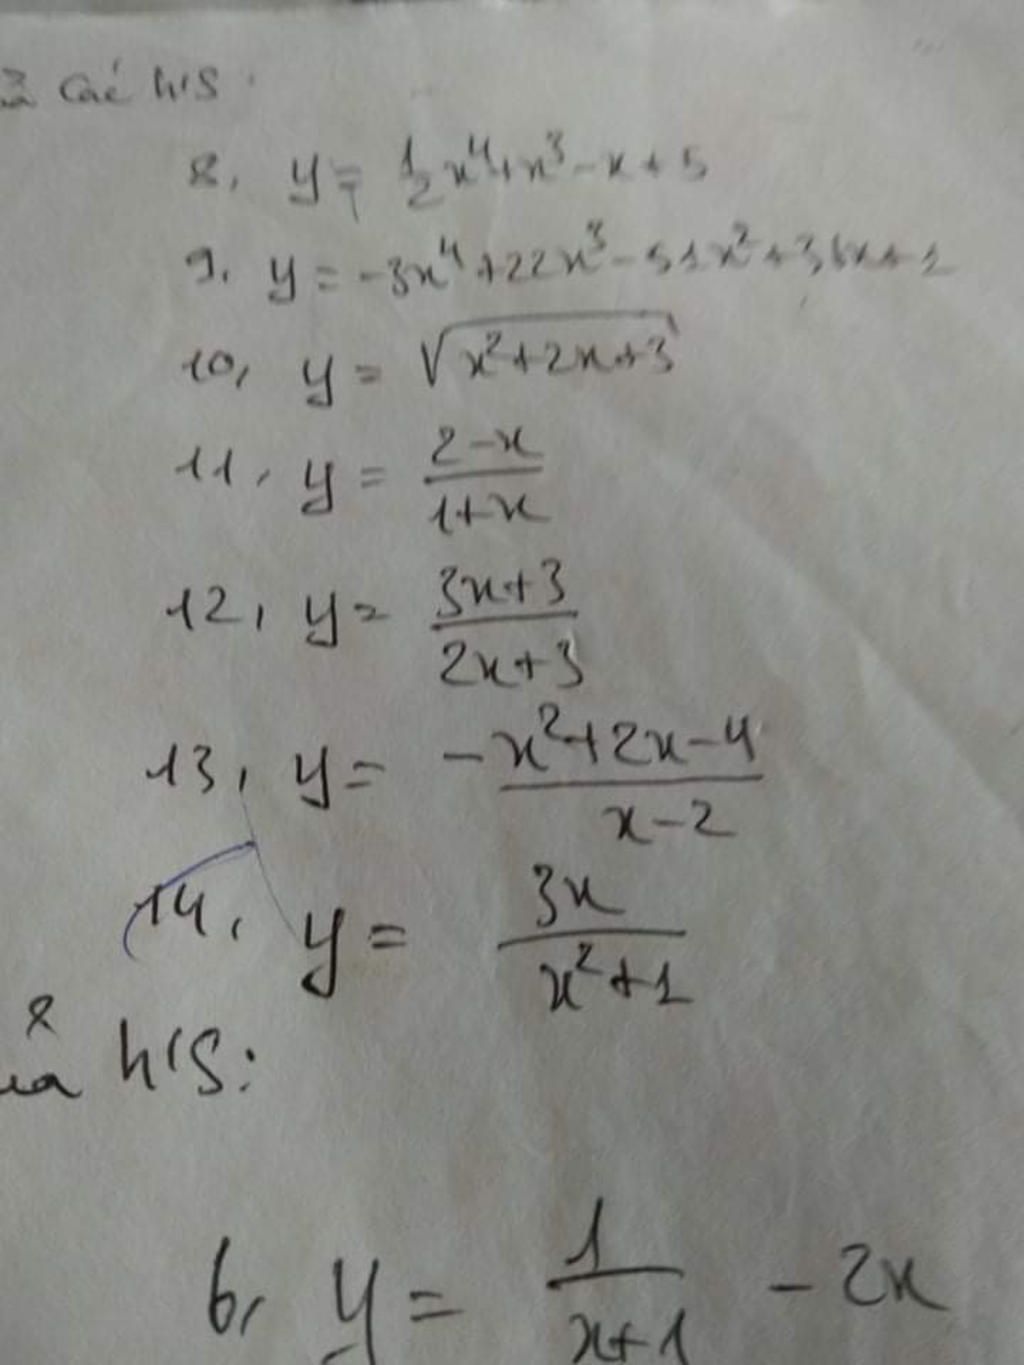 các h/s:
8, y = 1/2 x⁴+x³-x+5
9, y = -3x⁴+22x³-51x²+36x+1
10, y = √(x²+2x+3)
11, y = (2-x)/(1+x)
12, y = (3x+3)/(2x+3)
13, y = (-x²+2x-4)/(x-2)
14, y = 3x/(x²+1)
của h/s:
6, y = 1/(x+1) - 2x